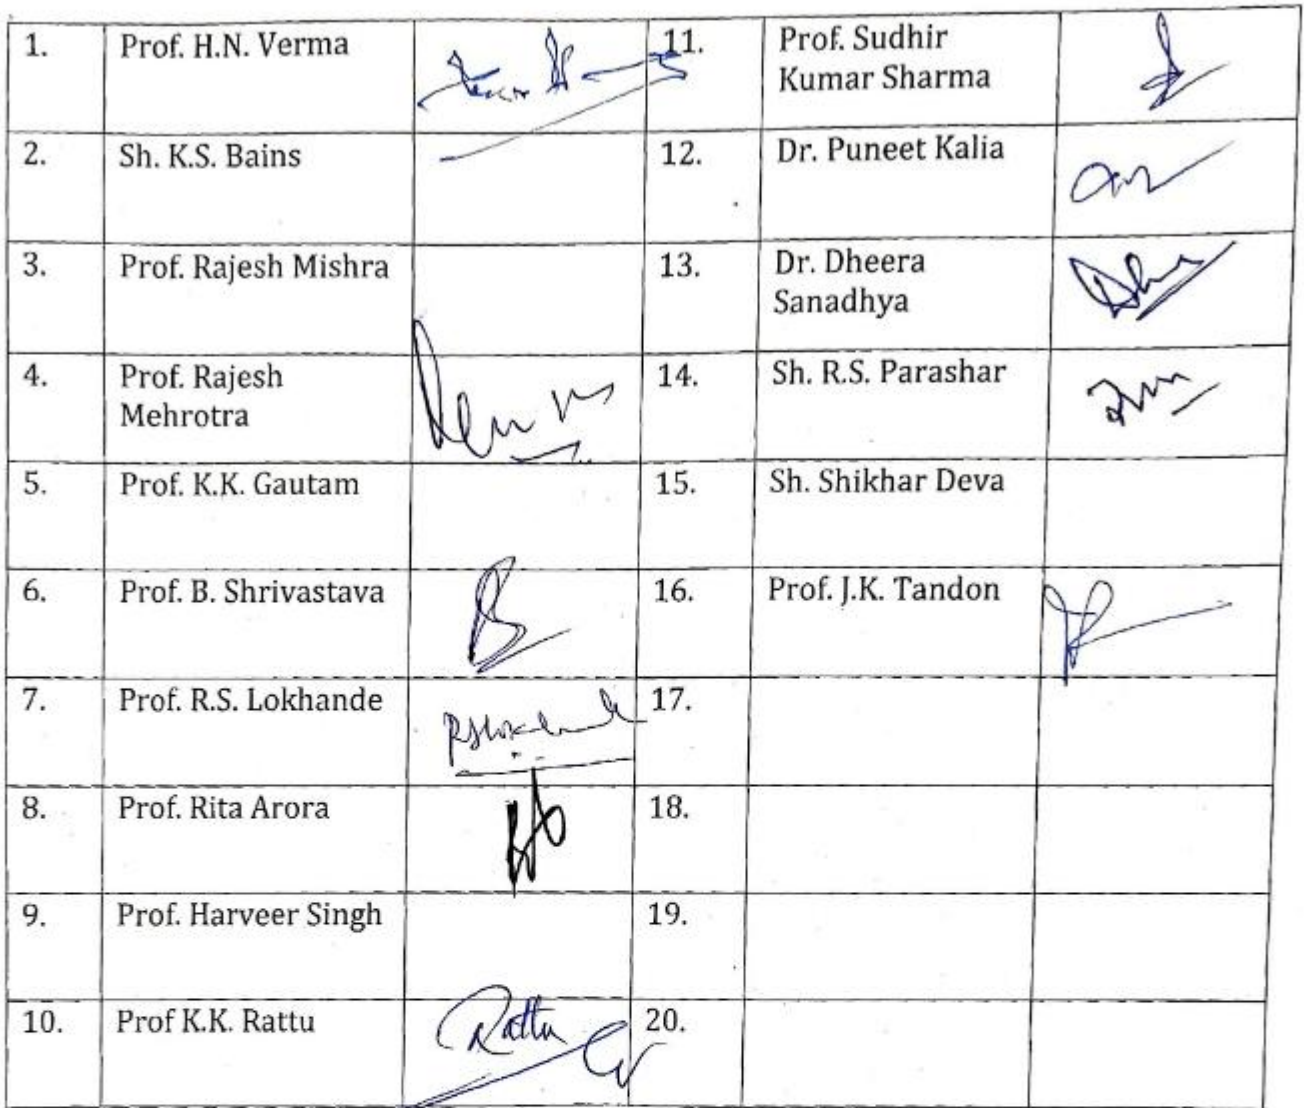 1.
Prof. H.N. Verma
11.
Prof. Sudhir
Kumar Sharma
2.
Sh. K.S. Bains
12.
Dr. Puneet Kalia
3.
Prof. Rajesh Mishra
13.
Dr. Dheera
Sanadhya
4.
Prof. Rajesh
Mehrotra
14.
Sh. R.S. Parashar
5.
Prof. K.K. Gautam
15.
Sh. Shikhar Deva
6.
Prof. B. Shrivastava
16.
Prof. J.K. Tandon
7.
Prof. R.S. Lokhande
17.
8.
Prof. Rita Arora
18.
9.
Prof. Harveer Singh
19.
10.
Prof K.K. Rattu
Rattu
20.